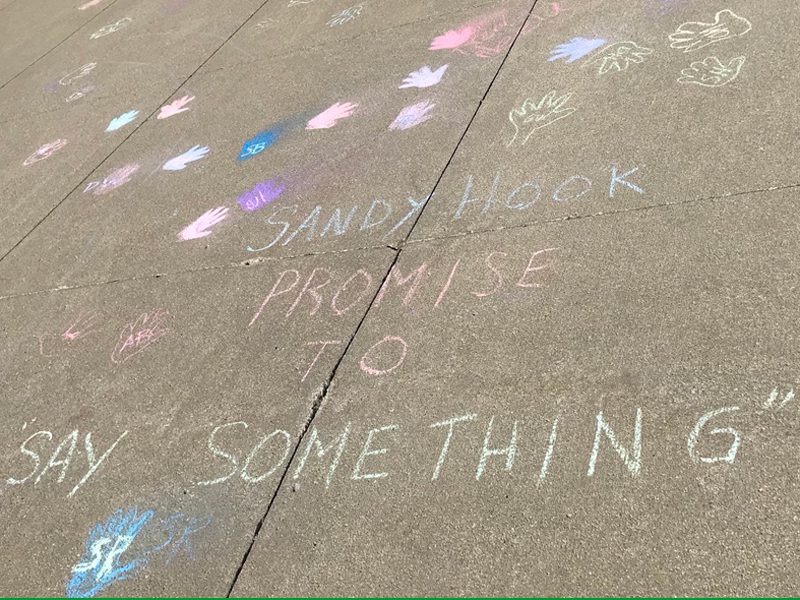 SB
SANDY HOOK
PROMISE
TO
ABC
"SAY SOMETHING"
SR
SR